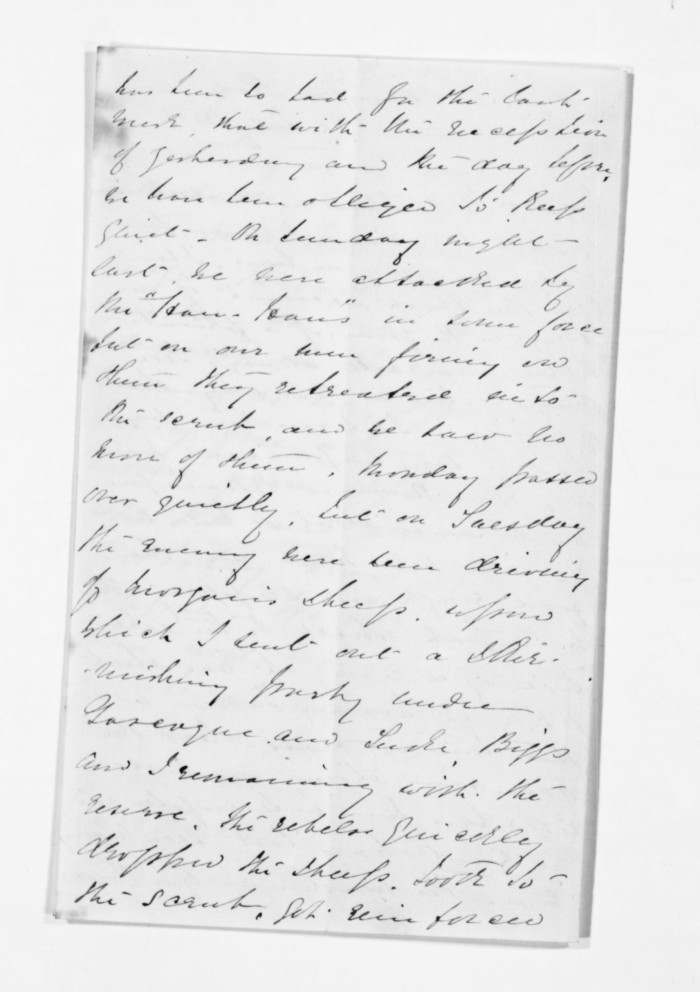 has been so bad for the last
week, that with the exception
of yesterday and the day before,
we have been obliged to keep
quiet - On Sunday night -
last, we were attacked by
the "Hau-Haus" in some force
but on our men firing on
them they retreated into
the scrub, and we saw no
more of them. Monday passed
over quietly, but on Tuesday
the enemy were seen driving
off Morgan's sheep. upon
which I sent out a skir-
mishing party under
Gascoyne and Biggs
and I remaining with the
reserve. The rebels quickly
dropped the sheep. took to
the scrub, got reinforced